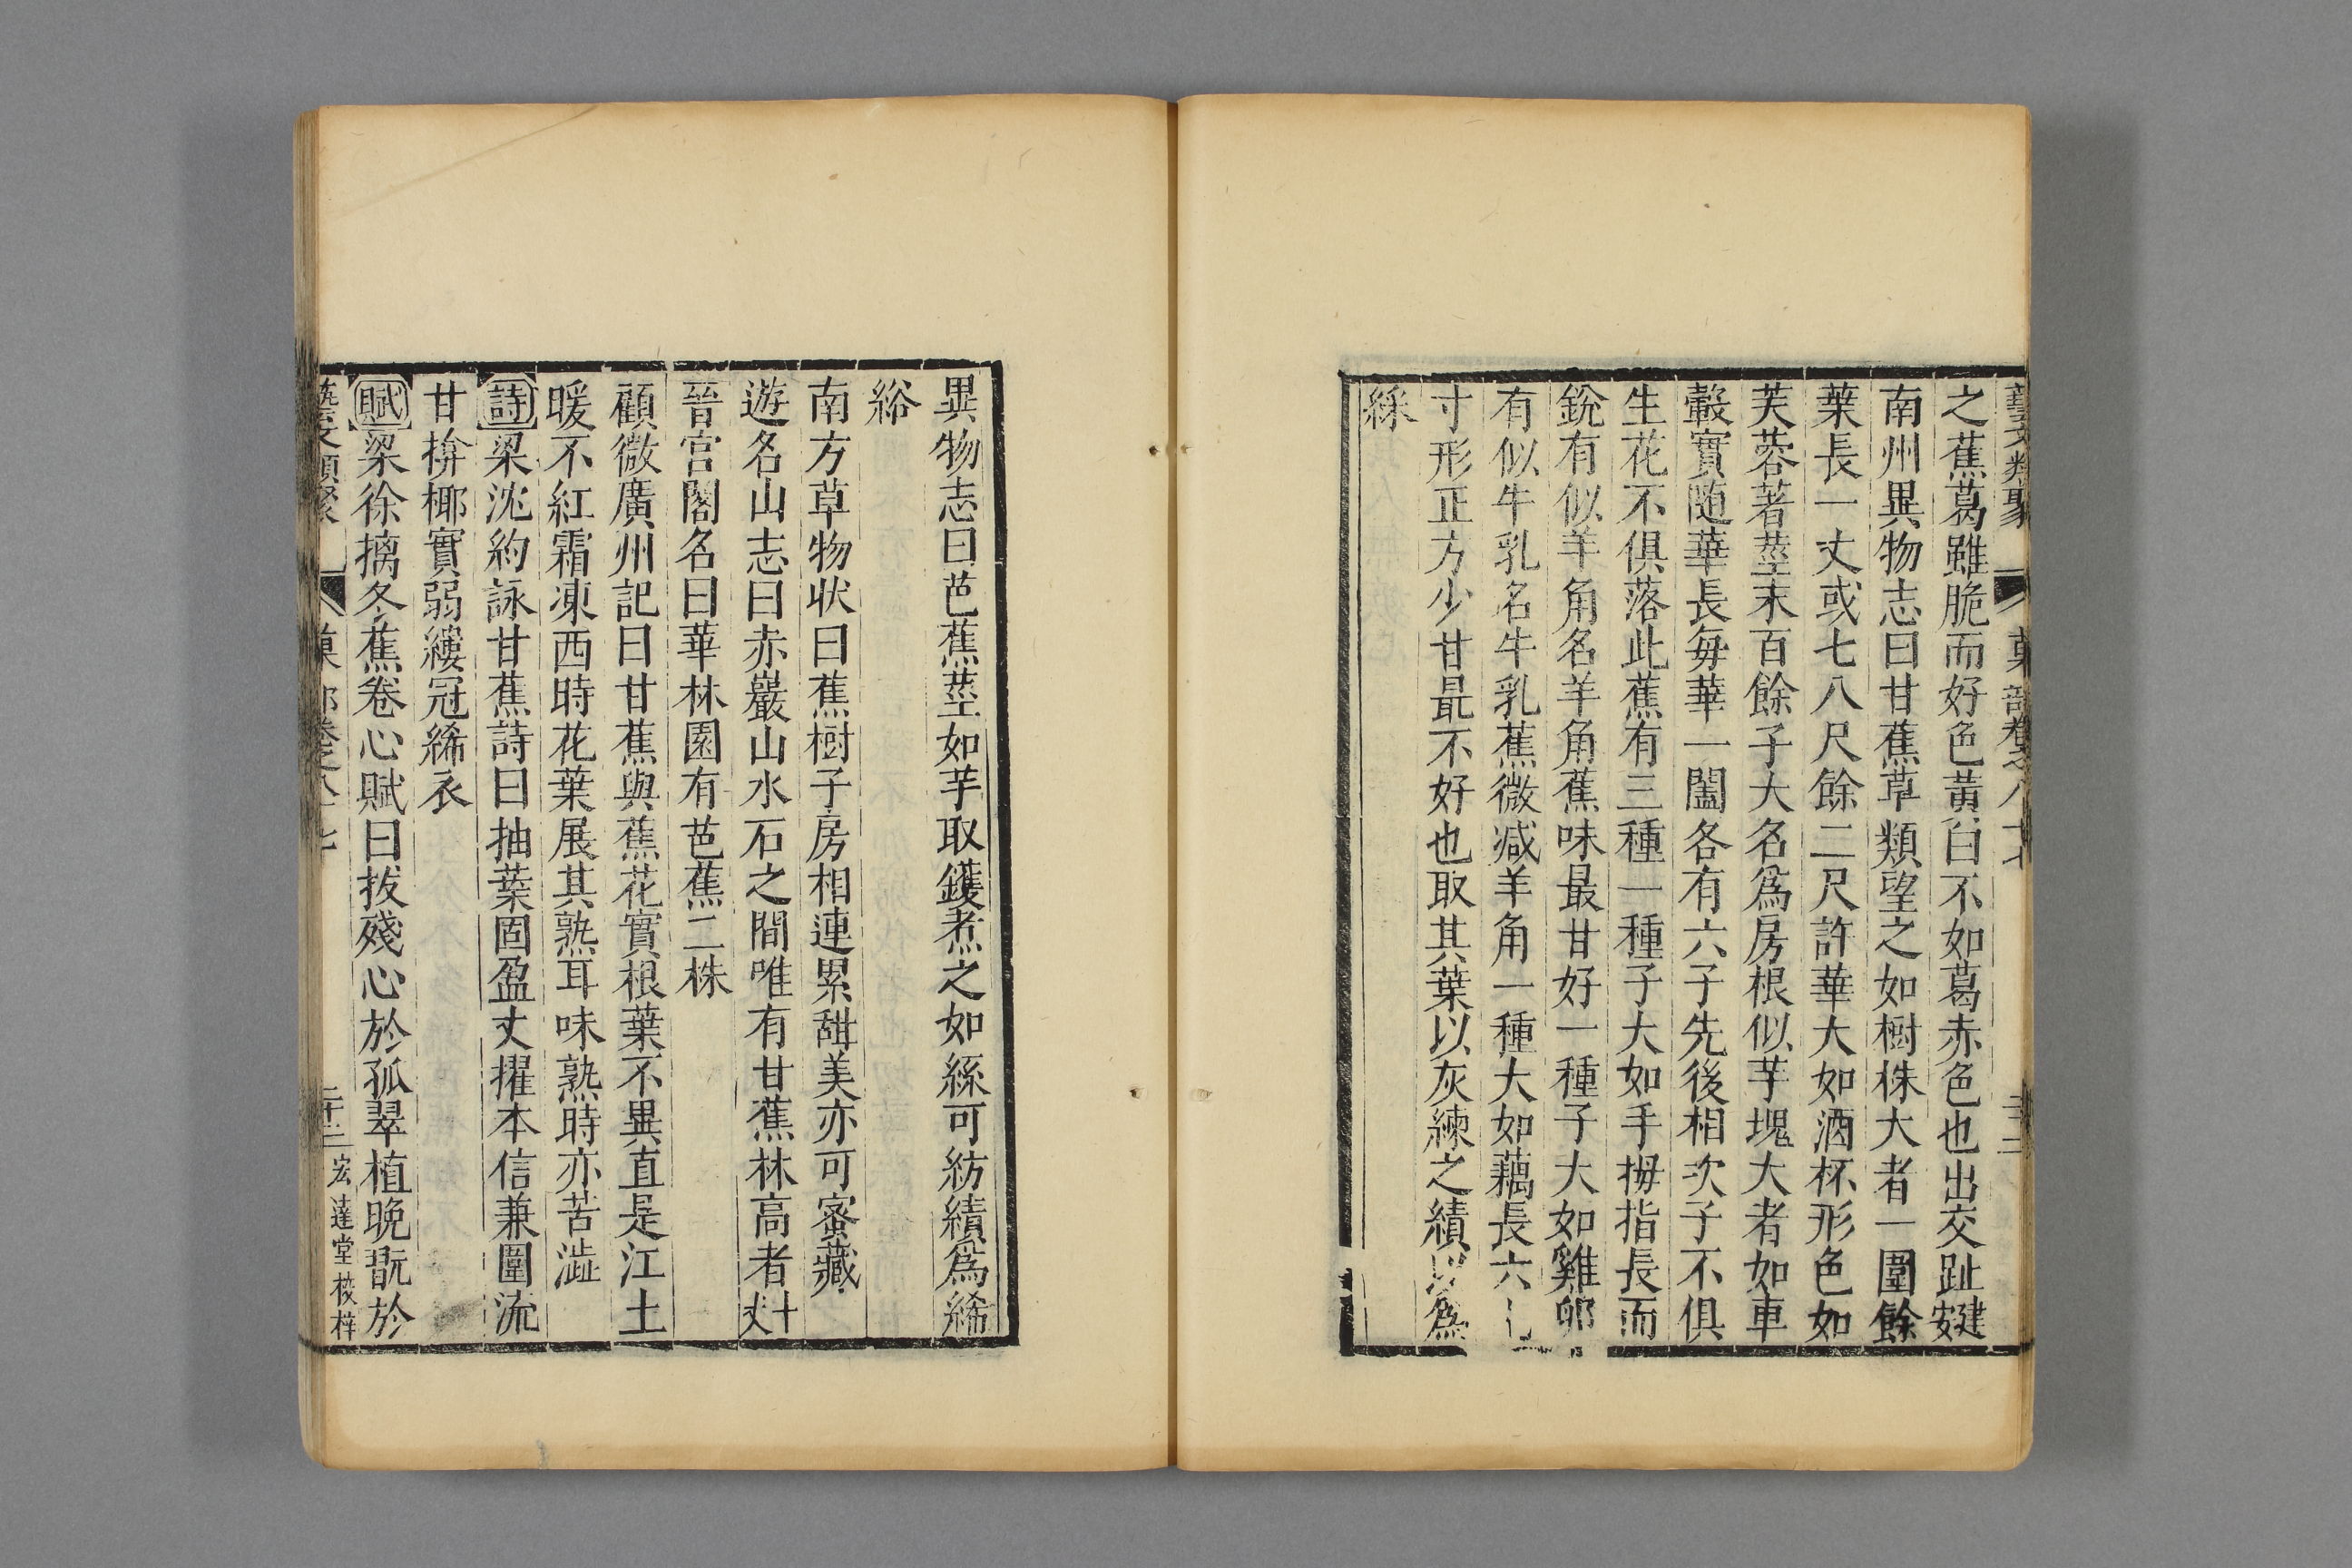 藝文類聚 菓部卷之八十七 二十二
之蕉葛雖脆而好色黃白不如葛赤色也出交趾建安
南州異物志曰甘蕉草類望之如樹株大者一圍餘
葉長一丈或七八尺餘二尺許華大如酒杯形色如
芙蓉著莖末百餘子大名爲房根似芋塊大者如車
轂實随華長每華一闔各有六子先後相次子不俱
生花不俱落此蕉有三種一種子大如手拇指長而
銳有似羊角名羊角蕉味最甘好一種子大如雞卵
有似牛乳名牛乳蕉微减羊角一種大如藕長六
寸形正方少甘最不好也取其葉以灰練之績以爲
綵
異物志曰芭蕉莖如芋取鑊煮之如絲可紡績爲絺
綌
南方草物状曰蕉樹子房相連累甜美亦可蜜藏
遊名山志曰赤巖山水石之間唯有甘蕉林高者十丈
晉宮閣名曰華林園有芭蕉二株
顧微廣州記曰甘蕉與蕉花實根葉不異直是江土
暖不紅霜凍西時花葉展其熟耳味熟時亦苦澁
詩梁沈約詠甘蕉詩曰抽葉固盈丈擢本信兼圍流
甘掩椰實弱縷冠絺衣
賦梁徐摛冬蕉卷心賦曰拔殘心於孤翠植晚翫於
藝文類聚 菓部卷之八十七 二十二 宏達堂校梓